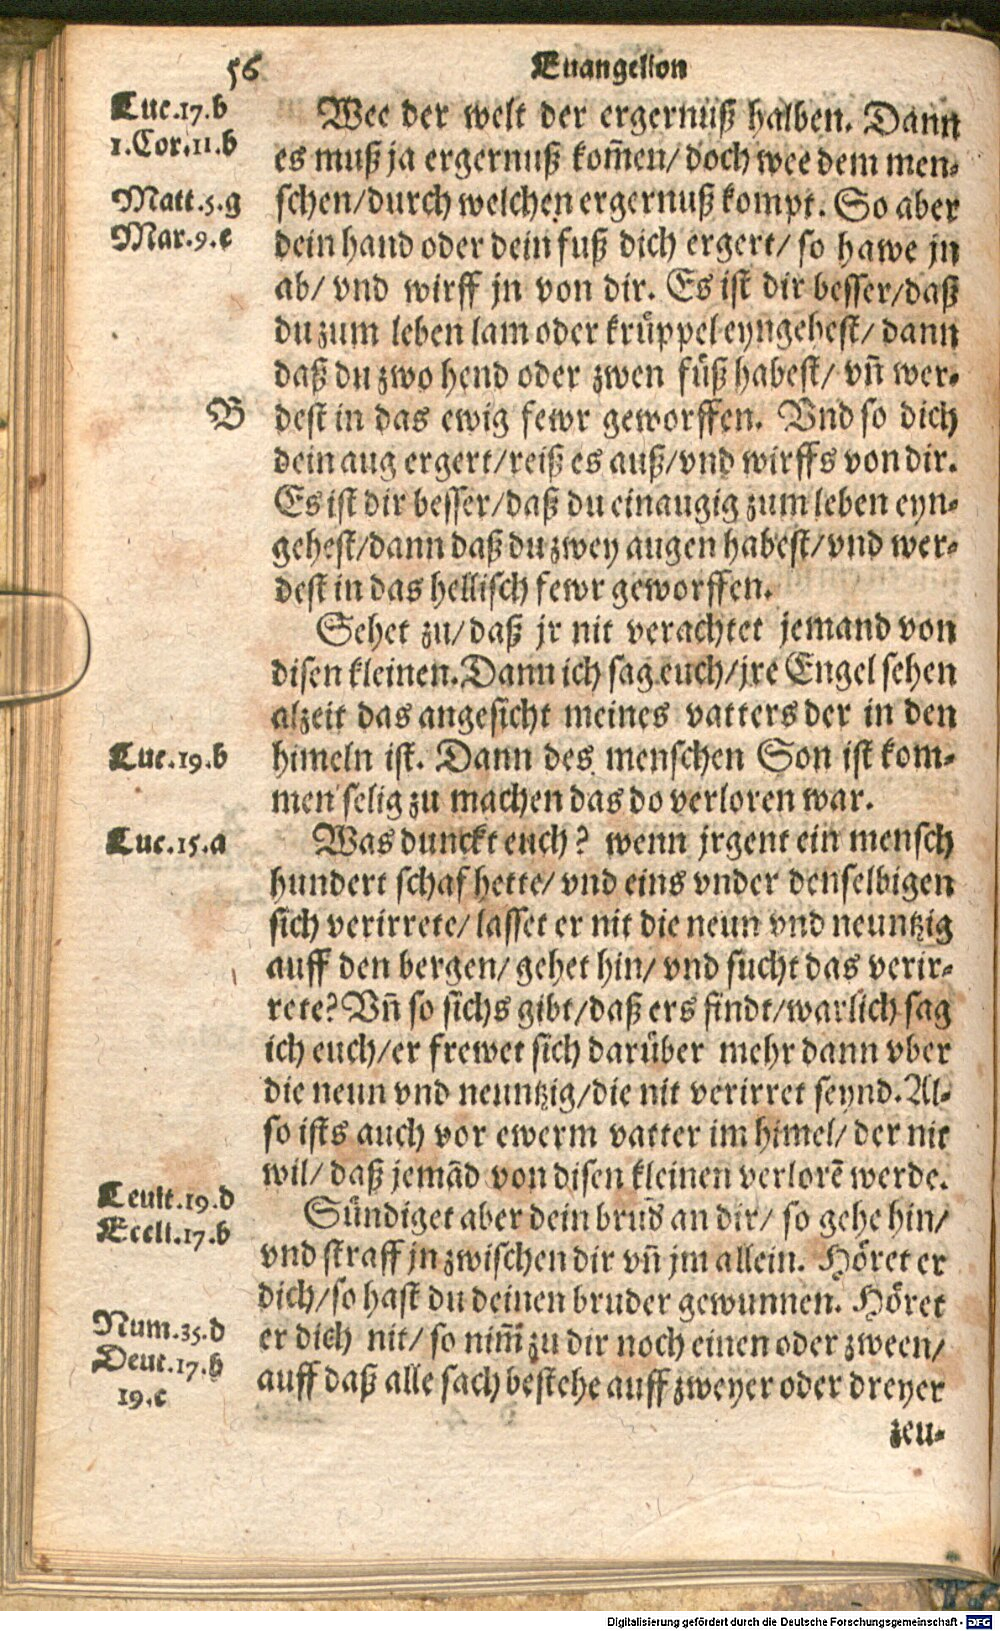 56 Euangelion
Luc.17.b
1.Cor.11.b
Matt.5.g
Mar.9.e
Wee der welt der ergernuß halben. Dann
es muß ja ergernuß kom̃en/ doch wee dem men-
schen/durch welchen ergernuß kompt. So aber
dein hand oder dein fuß dich ergert/ so hawe jn
ab/ vnd wirff jn von dir. Es ist dir besser/daß
du zum leben lam oder krüppel eyngehest/ dann
daß du zwo hend oder zwen füß habest/ vñ wer-
B
dest in das ewig fewr geworffen. Vnd so dich
dein aug ergert/reiß es auß/vnd wirffs von dir.
Es ist dir besser/daß du einaugig zum leben eyn-
gehest/dann daß du zwey augen habest/vnd wer-
dest in das hellisch fewr geworffen.
Sehet zu/daß jr nit verachtet jemand von
disen kleinen. Dann ich sag euch/jre Engel sehen
alzeit das angesicht meines vatters der in den
Luc.19.b
himeln ist. Dann des menschen Son ist kom-
men selig zu machen das do verloren war.
Luc.15.a
Was dunckt euch? wenn jrgent ein mensch
hundert schaf hette/ vnd eins vnder denselbigen
sich verirrete/ lasset er nit die neun vnd neuntzig
auff den bergen/ gehet hin/ vnd sucht das verir-
rete? Vñ so sichs gibt/daß ers findt/warlich sag
ich euch/er frewet sich darüber mehr dann vber
die neun vnd neuntzig/die nit verirret seynd. Al-
so ists auch vor ewerm vatter im himel/ der nit
wil/ daß jemãd von disen kleinen verlorẽ werde.
Leuit.19.d
Eccli.17.b
Sündiget aber dein brud̃ an dir/ so gehe hin/
vnd straff jn zwischen dir vñ jm allein. Höret er
dich/so hast du deinen bruder gewunnen. Höret
Num.35.d
Deut.17.h
19.c
er dich nit/ so nim̃ zu dir noch einen oder zween/
auff daß alle sach bestehe auff zweyer oder dreyer
zeu-
Digitalisierung gefördert durch die Deutsche Forschungsgemeinschaft - DFG